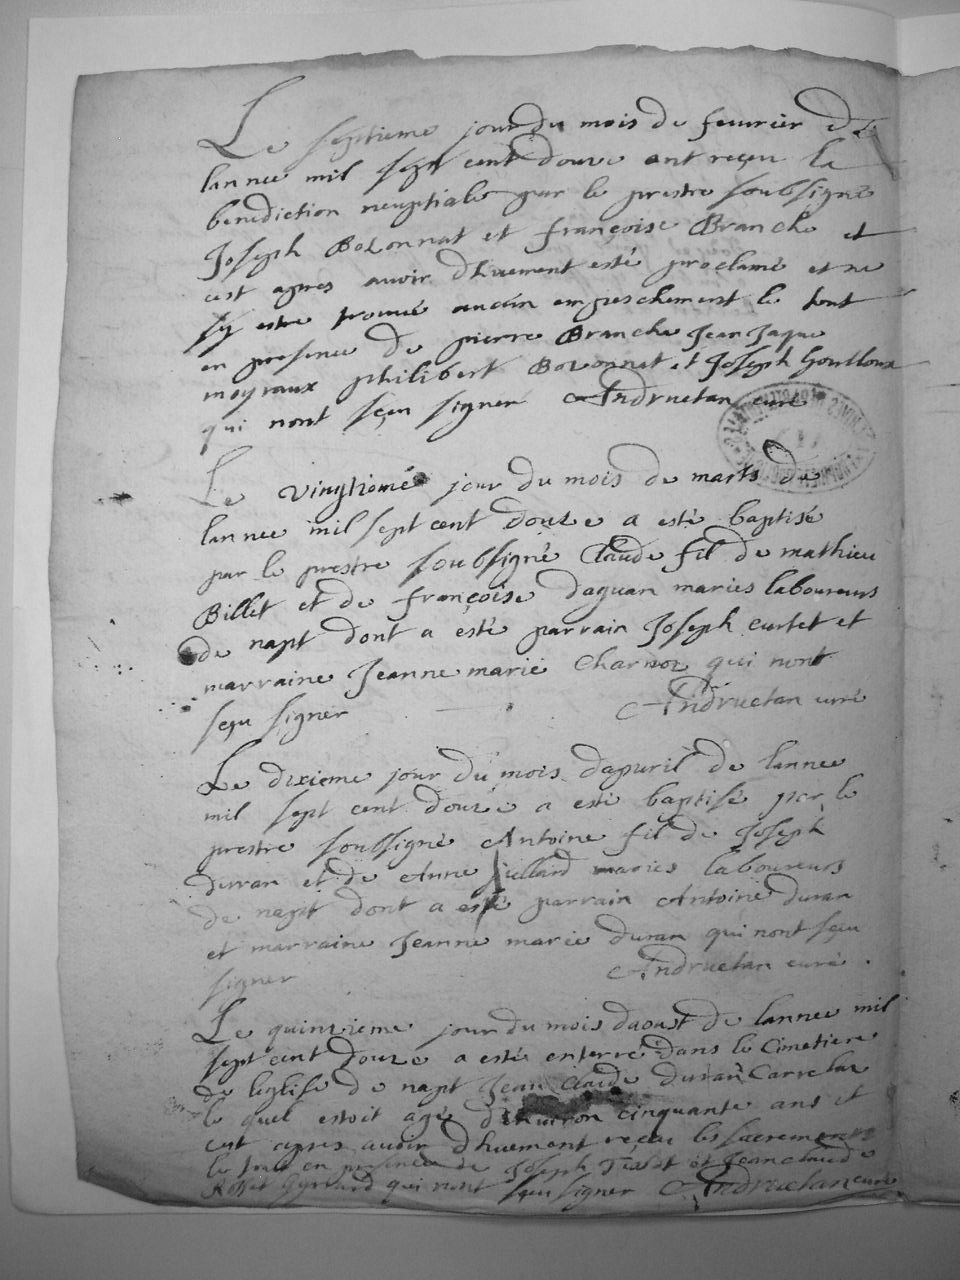 Le septieme jour du mois de feuurier de
lannee mil sept cent douze ont reçeu la
benediction neuptiale par le prestre soubsigné
Joseph Bozonnat et françoise Branche et
cest apres auoir dhuement esté proclamé et ne
sy estre trouué aucun empeschement le tout
en presence de pierre Branche Jean Jaque
moyraux philibert Bozonnat et Joseph Goulloux
qui nont sçeu signer Andruetan curé
Le vingtiemé jour du mois de marts de
lannee mil sept cent douze a esté baptisé
par le prestre soubsigné Claude fil de mathieu
Billet et de françoise daguan maries laboureurs
de napt dont a esté parrain Joseph curtet et
marraine Jeanne marie Charnoz qui nont
sçeu signer Andruetan curé
Le dixieme jour du mois dapuril de lannee
mil sept cent douze a esté baptisé par le
prestre soubsigné Antoine fil de Joseph
duran et de Anne Juilland maries laboureurs
de napt dont a esté parrain Antoine duran
et marraine Jeanne marie duran qui nont sçeu
signer Andruetan curé
Le quinzieme jour du mois daoust de lannee mil
sept cent douze a esté enterré dans le Cimetiere
de leglise de napt Jean Claude duran Carrelaz
le quel estoit agé denuiron cinquante ans et
cest apres auoir dhuement reçeu les sacrements
le tout en presence de Joseph et Jean claude
qui nont sçeu signer Andruetan curé